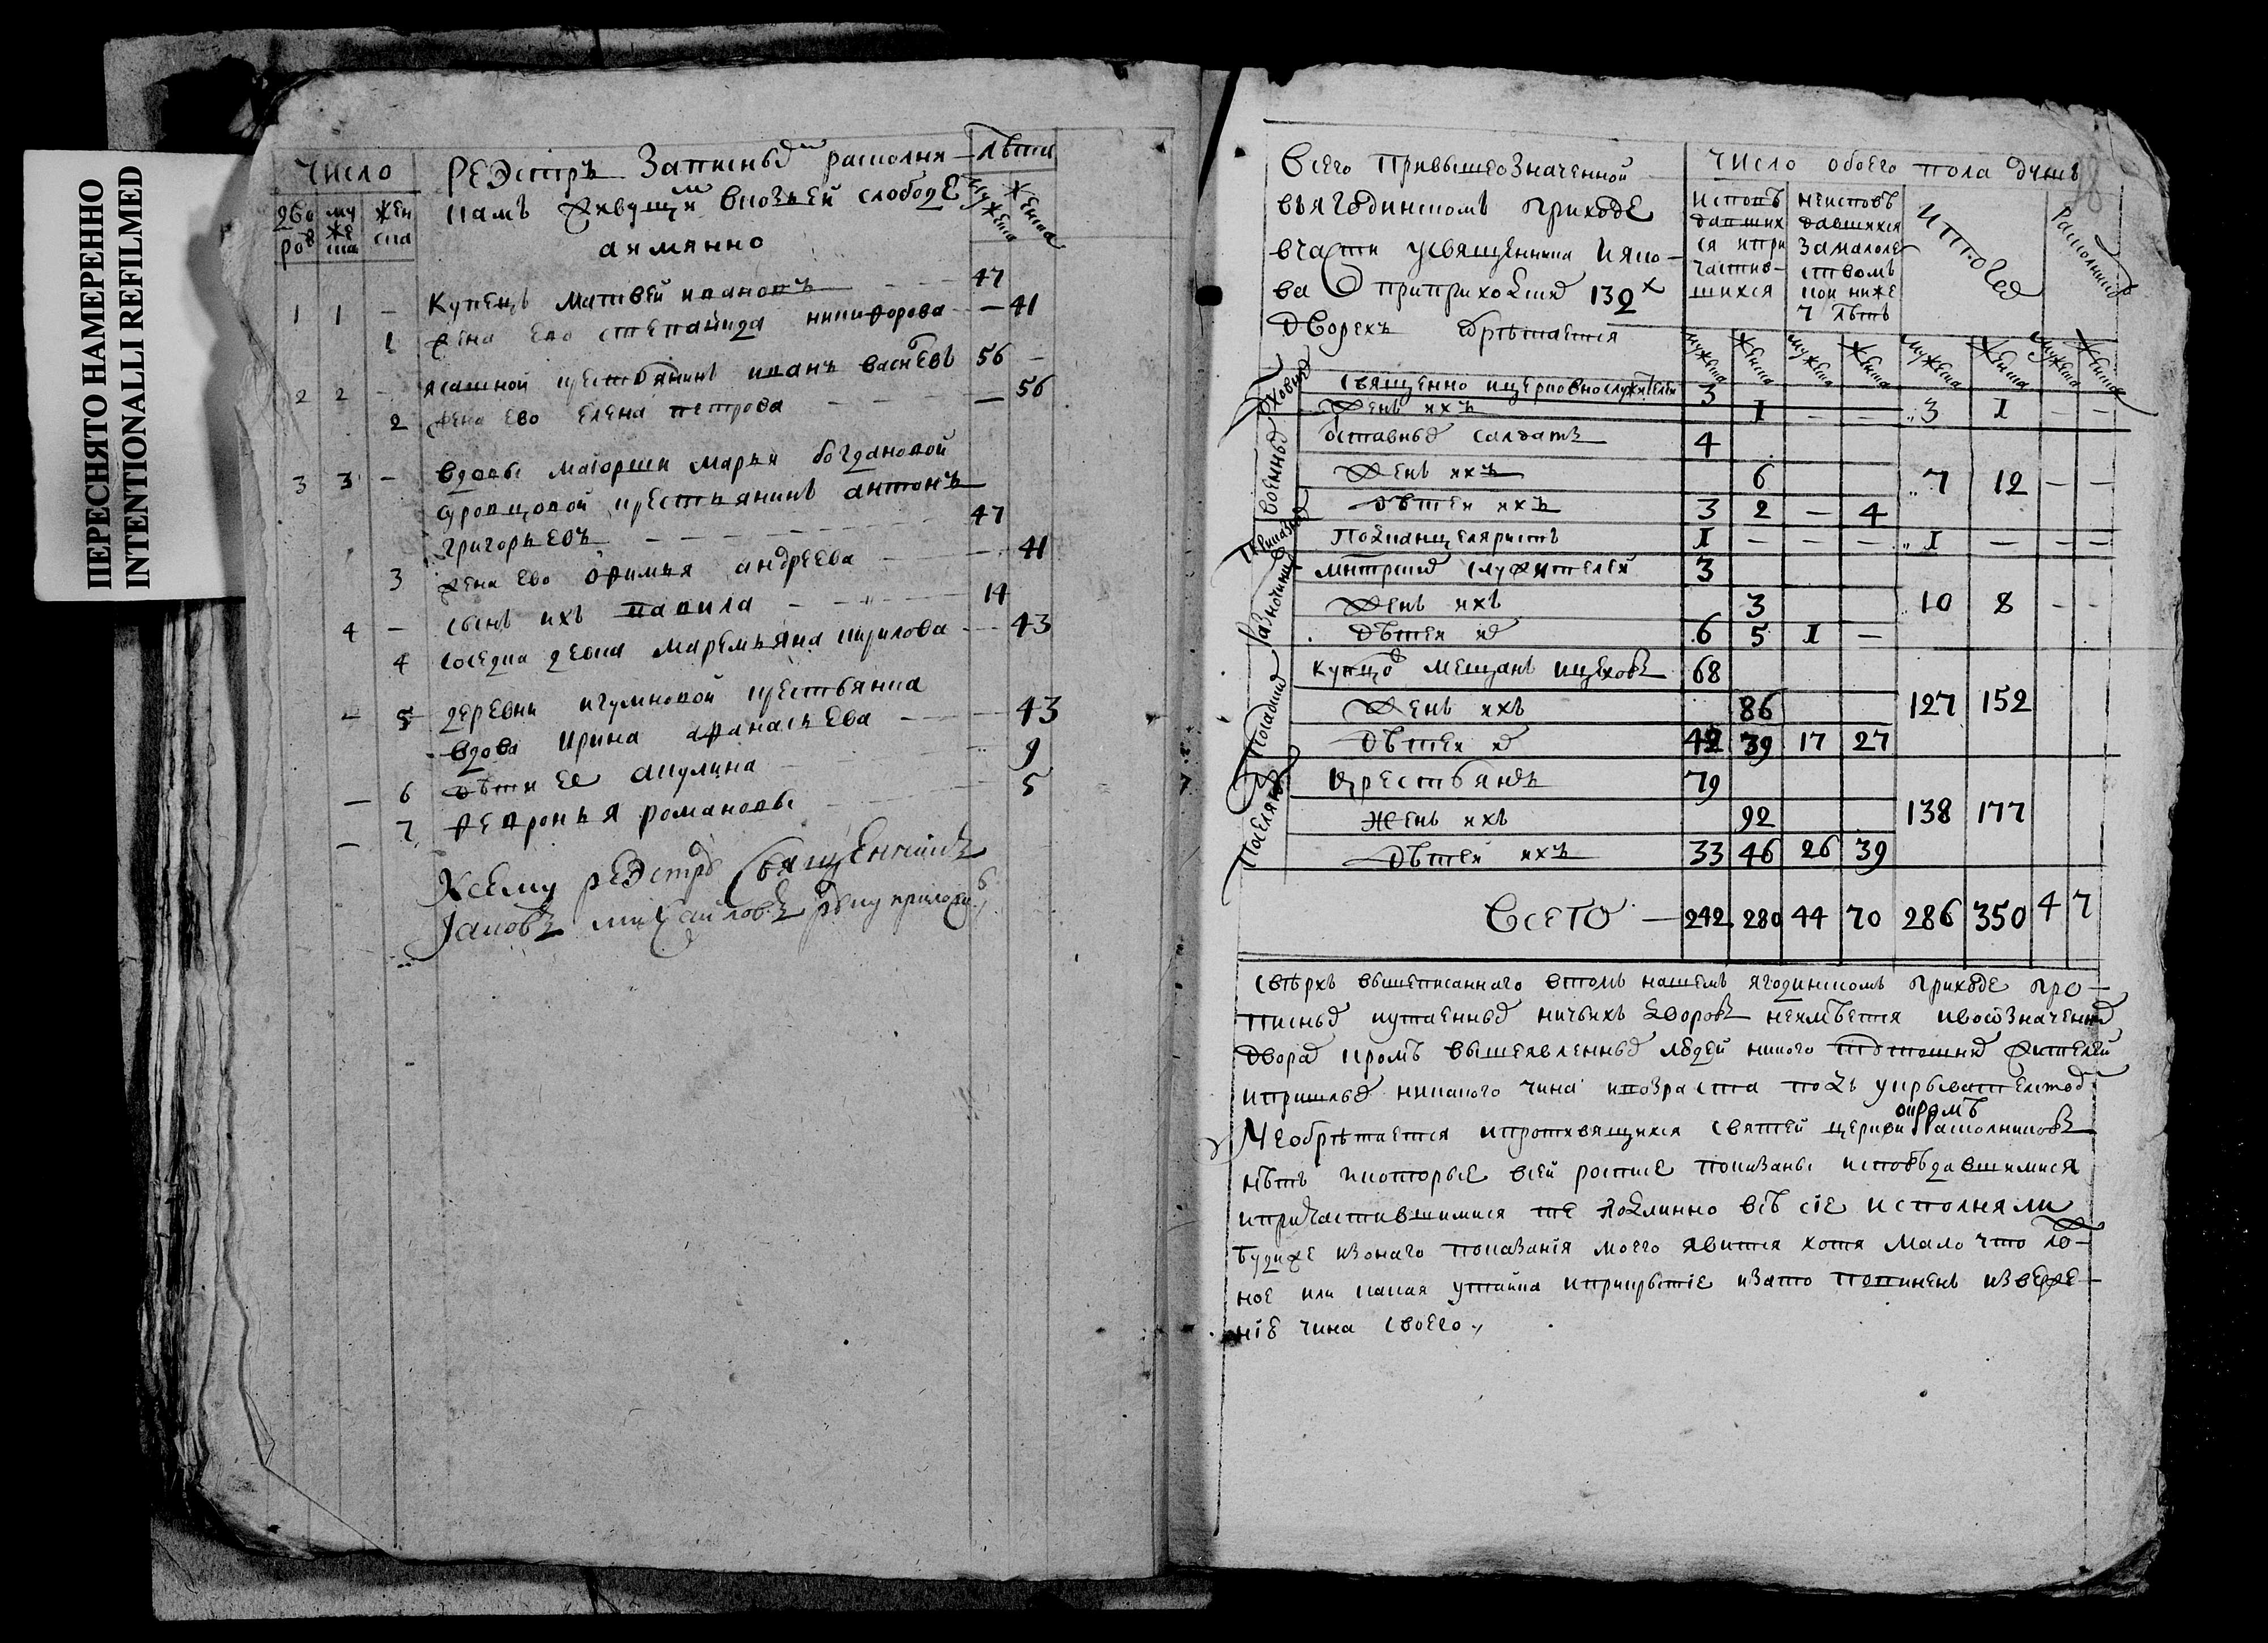 ПЕРЕСНЯТО НАМЕРЕННО
INTENTIONALLI REFILMED
число
дво ров
му же ска
жен ска
Реэстръ записныхъ расколни-
камъ живущи в козьей слободе
а имянно
лѣта
мужеска
женска
1 1 - Купецъ матвей ивановъ 47
1 жена ево степанида никифорова - 41
2 2 - ясашной крестьянинъ иванъ васильевъ 56 -
2 жена ево елена петрова - 56
3 3 - вдовы маіорши марьи богдановой
крестьянинъ антонъ
григорьевъ 47
3 жена ево афимья андреева - 41
4 - сынъ ихъ данила 14
4 соседка девка маремьяна кирилова - 43
- 5 деревни игумновой крестьянка
вдова ирина афанасьева - 43
- 6 дѣти ее акулина 9
- 7 февронья романовы 5
К сему реэстру священникъ
Іаковъ михайловъ руку приложи
Всего при вышеозначенной
в ягодинскомъ приходе
в части у священника иако-
ва в приприхоцкихъ 132х
дворехъ обрѣтается
число обоего пола душъ
исповѣ
давших
ся и при
частив-
шихся
неисповѣ
давшихся
за малоле
ствомъ
кои ниже
7 лѣтъ
итого всехъ
расколниковъ
мужеска женска мужеска женска мужеска женска мужеска женска
Духовныхъ
священно и церковнослужителей 3
женъ ихъ 1 - - 3 1 - -
военныхъ
отставныхъ салдатъ 4
женъ ихъ 6 7 12 - -
дѣтей ихъ 3 2 - 4
приказныхъ
подканцеляристъ 1 - - - 1 - - -
разночинцевъ
служителей 3
женъ ихъ 3 10 8 - -
дѣтей их 6 5 1 -
посадскихъ
купцовъ мещанъ и цеховъ 68
женъ ихъ 86 127 152
дѣтей их 42 39 17 27
поселянъ
крестьянъ 79
женъ ихъ 92 138 177
дѣтей ихъ 33 46 26 39
Всего - 242 280 44 70 286 350 4 7
сверхъ вышеписаннаго в томъ нашемъ ягодинскомъ приходе про-
писныхъ и утаенныхъ ничьихъ дворовъ неимѣется и во означенныхъ
дворахъ кромѣ вышеявленныхъ людей никого жителей
и пришлыхъ никакого чина и возраста подъ укрывателствомъ
окромѣ
Необрѣтается и противящихся святей церкви расколниковъ
нѣтъ и которые в сей росписе показаны исповѣдавшимися
и причастившимися те подлинно всѣ сіе исполняли
будиже из онаго показанія моего явится хотя мало что ло-
ное или какая утайка и прикрытіе и за то повиненъ изверже-
нія чина своего